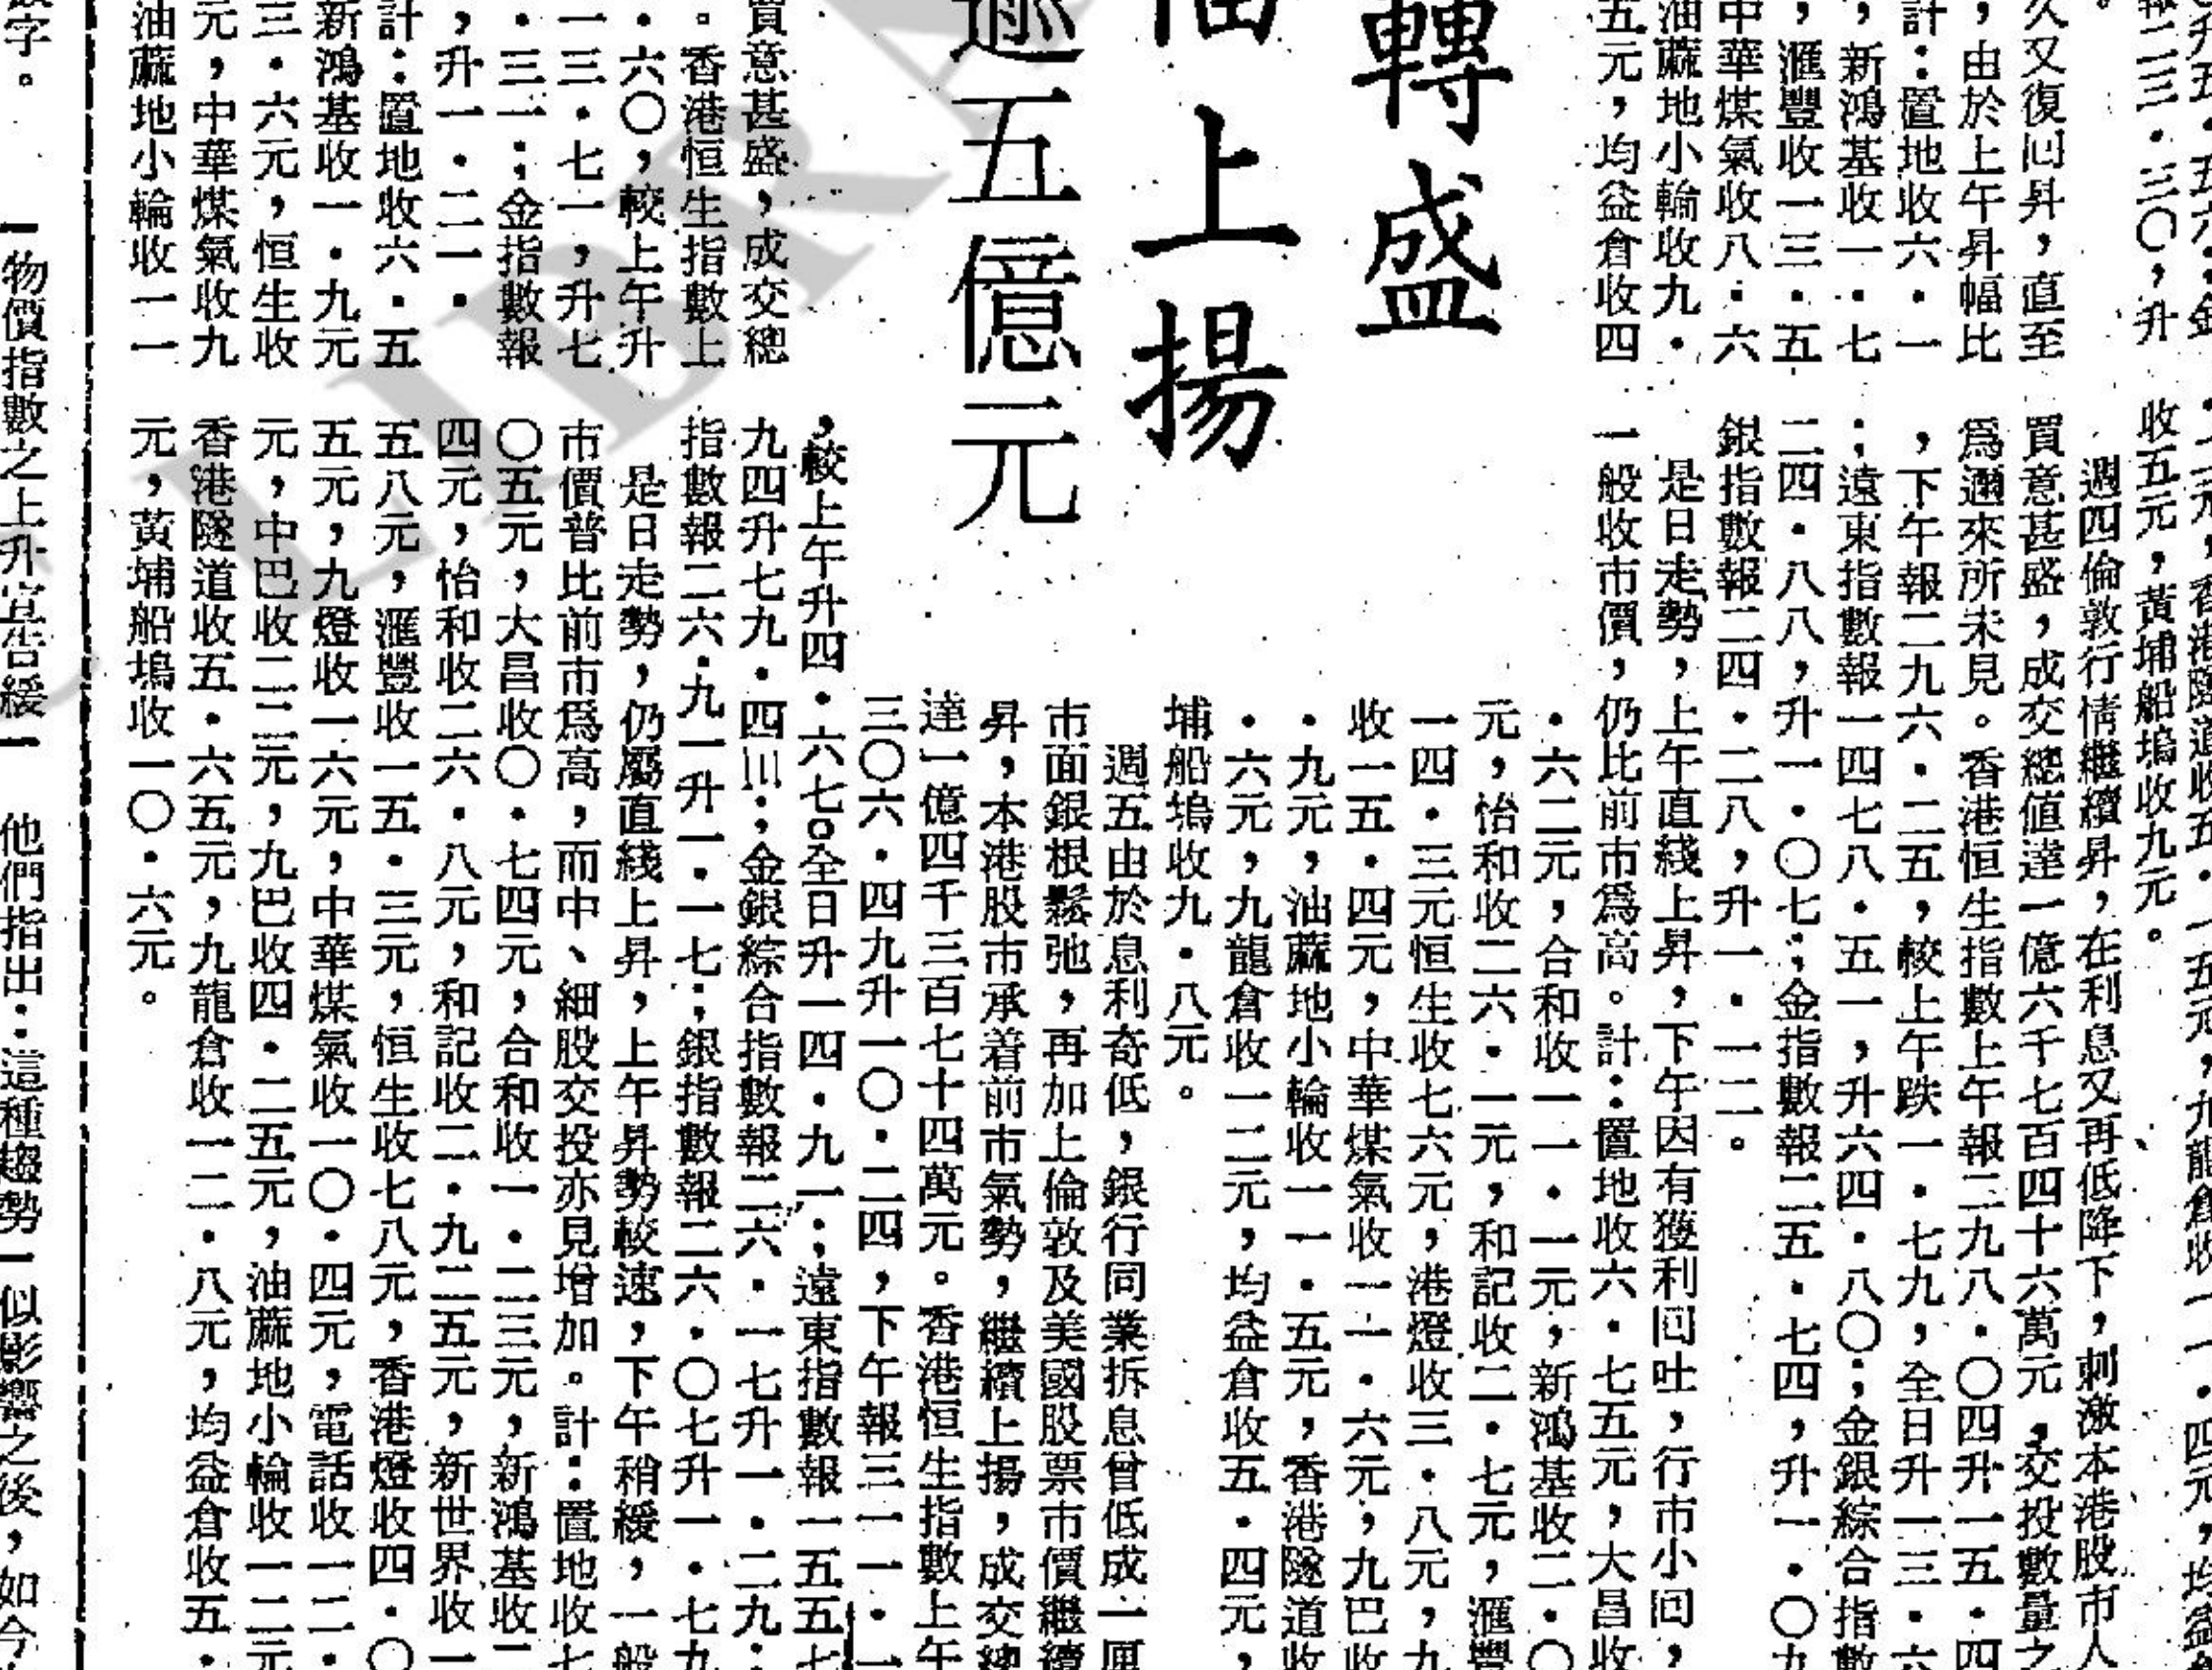 報二三・三〇，升
。
久又復回昇，直至
，由於上午昇幅比
計：置地收六・一
，新鴻基收一・七
，滙豐收一三・五
中華煤氣收八・六
油蔴地小輪收九・
五元，均益倉收四
轉盛
上揚
逾五億元
買意甚盛，成交總
。香港恒生指數上
・六〇，較上午升
一三・七一，升七
・三一；金指數報
，升一・二一・
計：置地收六・五
新鴻基收一・九元
三・六元，恒生收
元，中華煤氣收九
油蔴地小輪收一一
收五元，黃埔船塢收九元。
週四倫敦行情繼續昇，在利息又再低降下，刺激本港股市人
買意甚盛，成交總值達一億六千七百四十六萬元，交投數量之
爲邇來所未見。香港恒生指數上午報二九八・〇四升一五・四
，下午報二九六・二五，較上午跌一・七九，全日升一三・六
；遠東指數報一四七八・五一，升六四・八〇；金銀綜合指數
二四・八八，升一・〇七；金指數報二五・七四，升一・〇九
銀指數報二四・二八，升一・一二。
是日走勢，上午直綫上昇，下午因有獲利回吐，行市小回，
一般收市價，仍比前市爲高。計：置地收六・七五元，大昌收
・六二元，合和收一一・一元，新鴻基收二・〇
元，怡和收二六・一元，和記收二・七元，滙豐
一四・三元恒生收七六元，港燈收三・八元，九
收一五・四元，中華煤氣收一一・六元，九巴收
・九元，油蔴地小輪收一一・五元，香港隧道收
・六元，九龍倉收一二元，均益倉收五・四元，
埔船塢收九・八元。
週五由於息利奇低，銀行同業拆息曾低成一厘
市面銀根鬆弛，再加上倫敦及美國股票市價繼續
昇，本港股市承着前市氣勢，繼續上揚，成交總
達一億四千三百七十四萬元。香港恒生指數上午
三〇六・四九升一〇・二四，下午報三一一・一
，較上午升四・六七。全日升一四・九一；遠東指數報一五五七
九四升七九・四川；金銀綜合指數報二六・一七升一・二九；
指數報二六・九一升一・一七；銀指數報二六・〇七升一・七九
是日走勢，仍屬直綫上昇，上午昇勢較速，下午稍緩，一般
市價普比前市爲高，而中、細股交投亦見增加。計：置地收七
〇五元，大昌收〇・七四元，合和收一・二三元，新鴻基收二
四元，怡和收二六・八元，和記收二・九二五元，新世界收一
五八元，滙豐收一五・三元，恒生收七八元，香港燈收四・〇
五元，九燈收一六元，中華煤氣收一〇・四元，電話收一二・
元，中巴收二三元，九巴收四・二五元，油蔴地小輪收一二元
香港隧道收五・六五元，九龍倉收一二・八元，均益倉收五・
元，黃埔船塢收一〇・六元。
字。　物價指數之上升宣告緩　他們指出：這種趨勢　似影響之後，如今